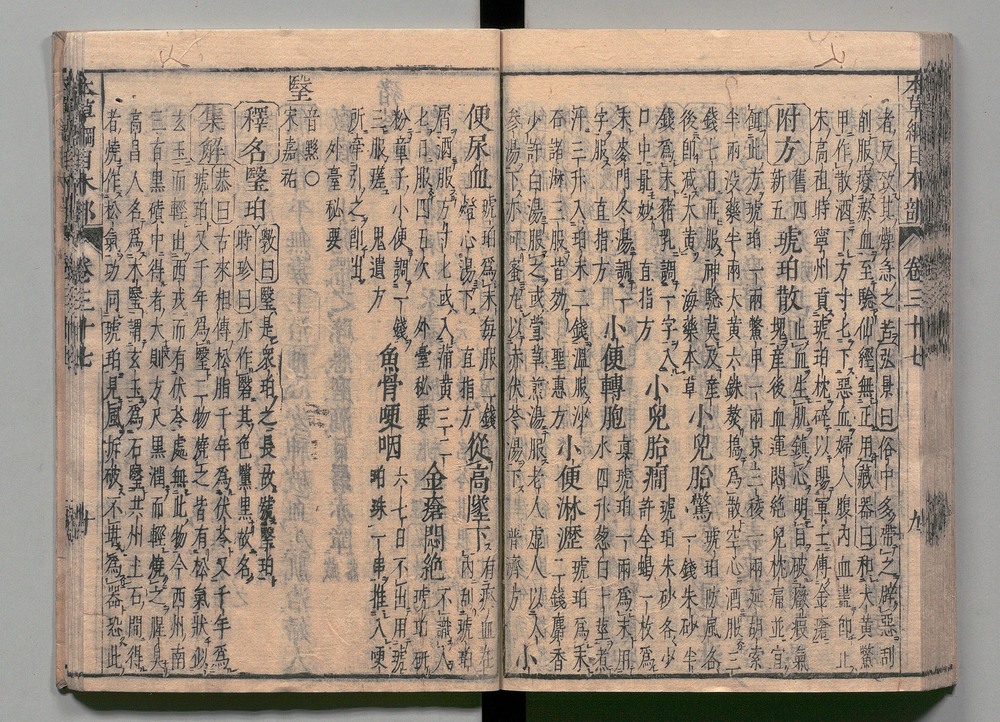 本草綱目木部 卷三十七 九
者反致其幣急之弘景曰俗中多帶之辟惡刮
削服療瘀血至驗仙經無正用藏器曰和大黃鱉
甲作散酒下方寸七下惡血婦人腹內血盡即止
宋高祖時寧州貢琥珀枕碎以賜軍士傅金瘡
附方舊四新五琥珀散止血生肌鎮心明目破癥瘕氣
塊產後血運悶絕兒枕痛並宜
餌此方琥珀一兩鱉甲一兩京三棱一兩延胡索
半兩沒藥半兩大黃六銖熬搗為散空心酒服三
錢七日再服神驗莫及產
後即減大黃海藥本草小兒胎驚琥珀防風各
一錢朱砂半
錢為末豬乳調一字入
口中最妙直指方小兒胎癇琥珀朱砂各少
許全蝎一枚為
末麥門冬湯調一
字服直指方小便轉胞真琥珀一兩為末用
水四升葱白十莖煮
汁三升入珀末二錢溫服沙
石諸淋皆效聖惠方小便淋瀝琥珀為末
二錢麝香
少許白湯服之或萱草煎湯服老人虛人以人
參湯下亦可蜜丸以赤伏苓湯下普濟方小
便尿血琥珀為末每服二錢
燈心湯下直指方從高墜下有瘀血在
內刮琥珀
屑酒服方寸七或入蒲黃三二
七日日服四五次外臺秘要金瘡悶絕不識人
琥珀研
粉童子小便調一錢
三服瘥鬼遺方魚骨哽咽六七日不出用琥
珀珠一串推入哽
所牽引之即出
外臺秘要
瑿音黳〇
宋嘉祐
釋名瑿珀斅曰瑿是眾珀之長故號瑿珀
時珍曰亦作黳其色黳黑故名
集解恭曰古來相傳松脂千年為伏苓又千年為
琥珀又千年為瑿二物燒之皆有松氣狀少
玄玉而輕出西戎而有伏苓處無此物今西州南
三百里磧中得者大則方尺黑潤而輕燒之腥臭
高昌人名為木瑿謂玄玉為石瑿共州土石間得
者燒作松氣功同琥珀見風拆破不堪為器恐此
本草綱目木部 卷三十七 十